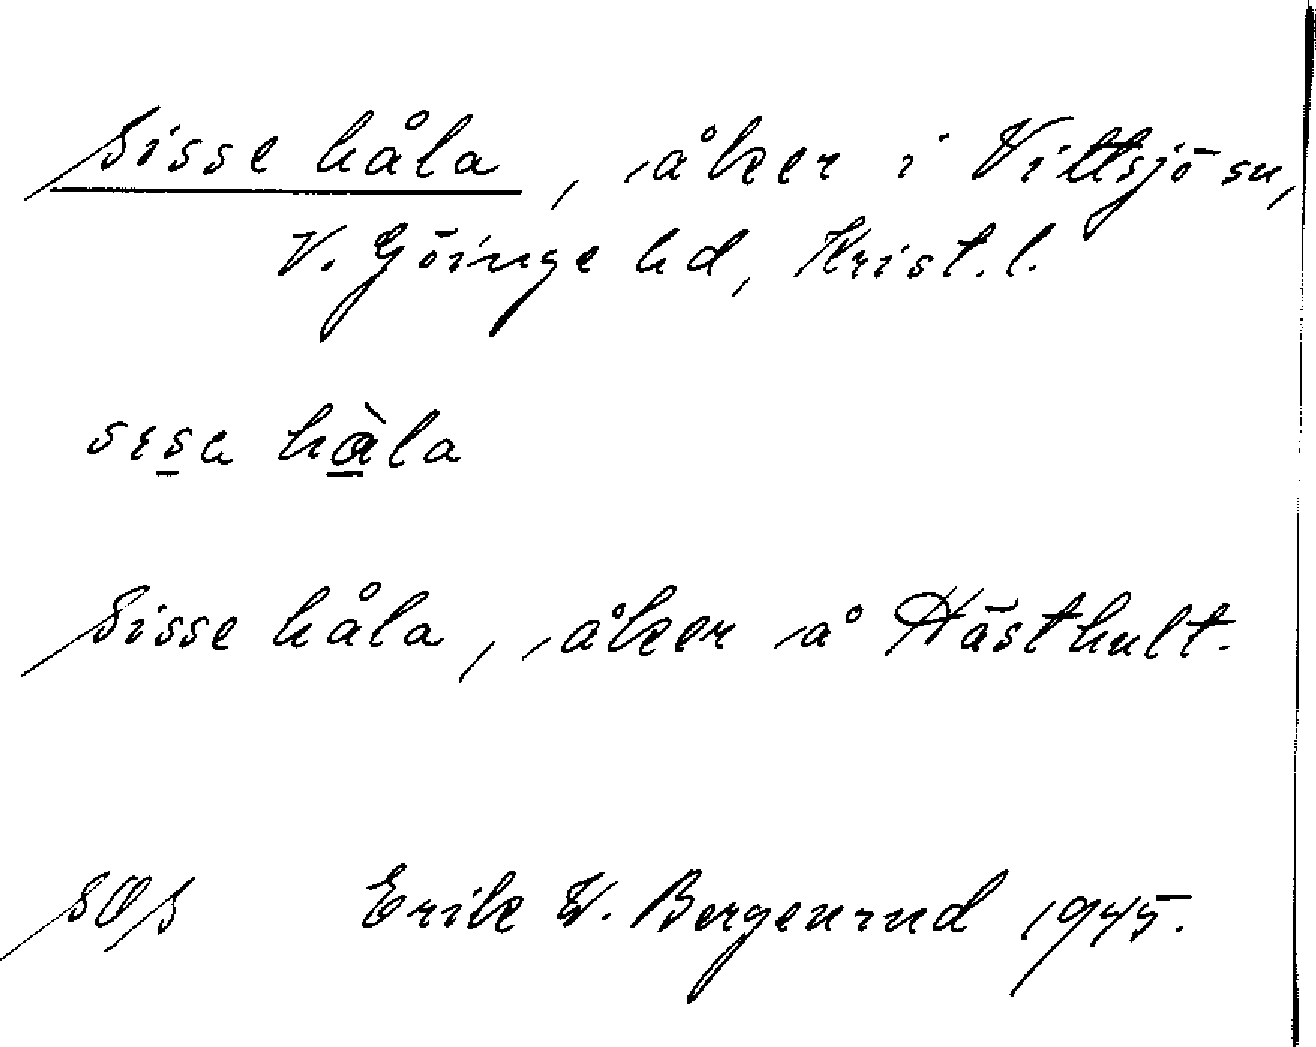 Sisse håla, åker i Vittsjö sn,
V. Göinge hd, Krist. l.
sisa hàla
Sisse håla, åker å Hästhult.
Erik W. Bergenrud 1945.